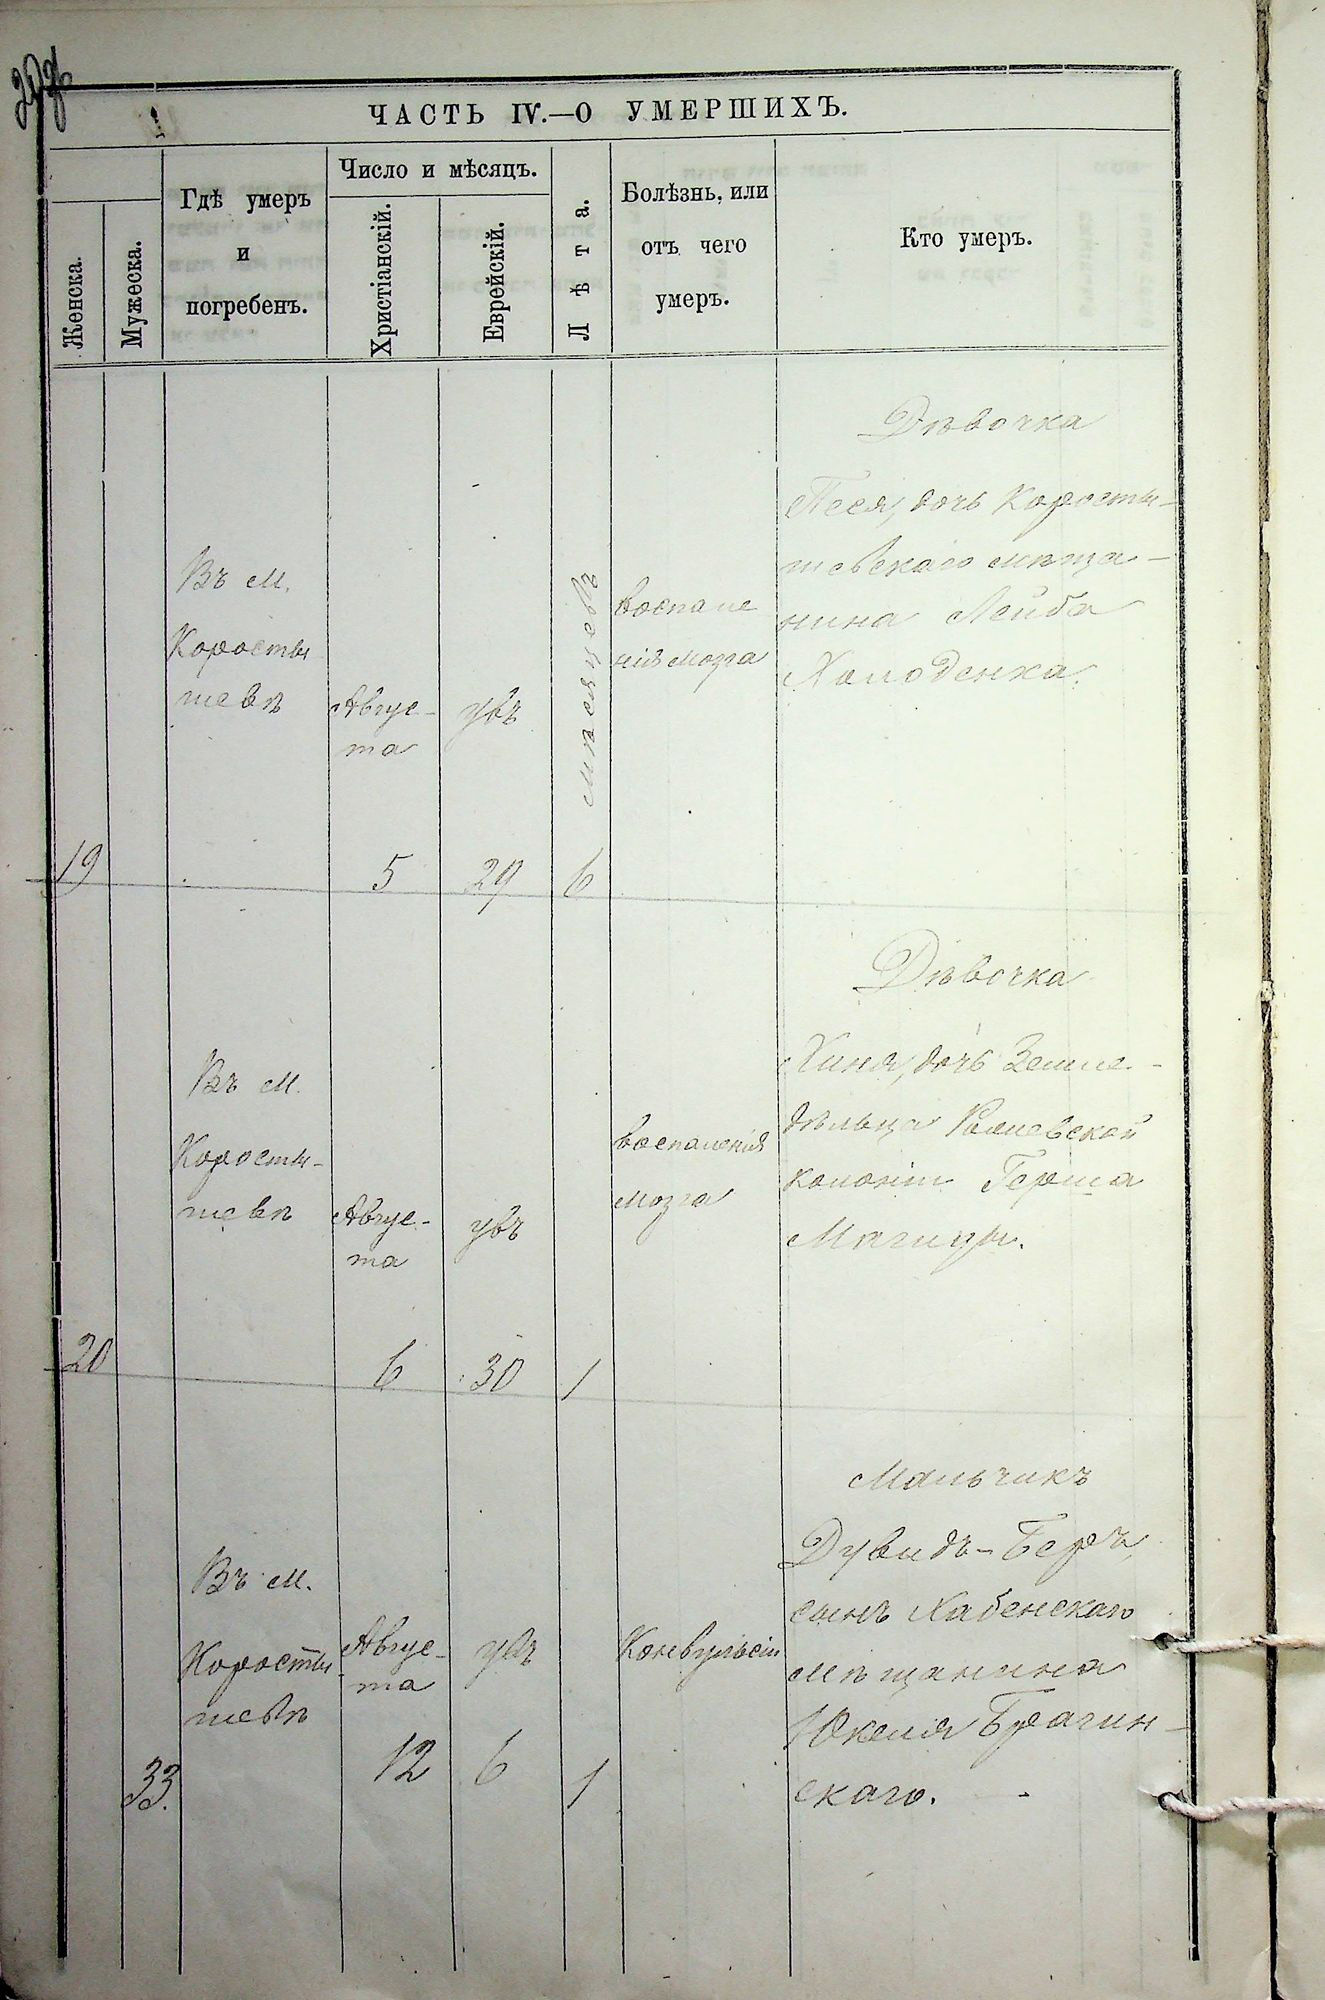 ЧАСТЬ IV.—О УМЕРШИХЪ.
Женска.
Мужеска.
Гдѣ умеръ
и
погребенъ.
Число и мѣсяцъ.
Христіанскій.
Еврейскій.
Лѣта.
Болѣзнь, или
отъ чего
умеръ.
Кто умеръ.
19
Въ м.
Коросты
шевѣ
Авгус-
та
5
29
мѣсяцевъ
6
воспале
нія мозга
Дѣвочка
Песя, дочь Коросты-
шевскаго мѣща-
нина Лейба
Холоденка.
20
Въ м.
Коросты-
шевѣ
Авгус-
та
6
30
1
воспаленія
мозга
Дѣвочка
Хиня, дочь Земле-
дѣльца
колоніи Герша
33.
Въ м.
Коросты
шевѣ
Авгус-
та
12
6
1
Конвульсіи
Мальчикъ
Дувидъ-Беръ,
сынъ Хабенскаго
мѣщанина
Юкеля Брагин-
скаго.